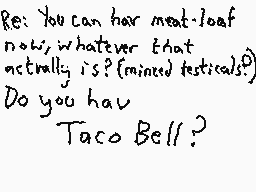 Re: You can hav meat-loaf
now, whatever that
actually is? (minced testicals?)
Do you hav
Taco Bell?